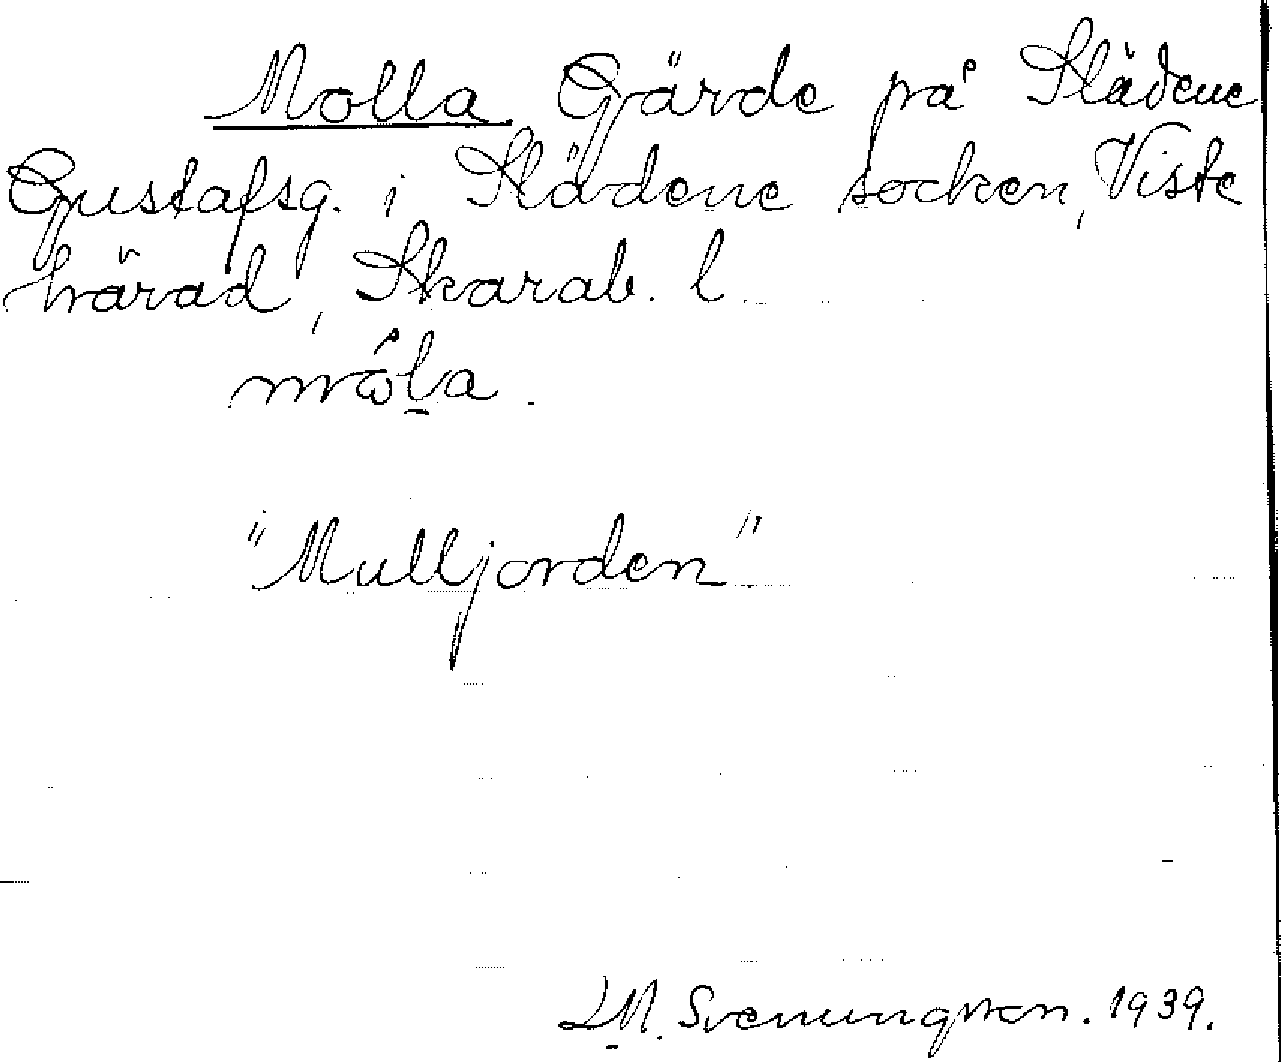 Molla. Gärde på Slädene
Gustafsg. i Slädene socken, Viste
härad, Skarab. l.
móḷa.
"Mulljorden"
L M. Svenungsson. 1939.